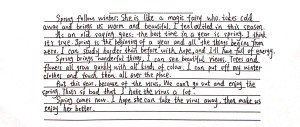 Spring follows winter. She is like a magic fairy who takes cold
away and brings us warm and beautiful. I feel excited in this season.
As an old saying goes, the best time in a year is spring. I think
it's true. Spring is the beginning of a year and all the things begins from
zero. I can study harder than before with the hope, and I'll have full of energy.
Spring brings wonderful things, I can see beautiful views. Trees and
flowers all grow quickly with all kinds of colour. I can put off my winter
clothes and touch them all over the place.
But this year, because of the virus, We can't go out and enjoy the
spring. That's so bad that I hate the virus a lot.
Spring comes now. I hope she can take the virus away, then make us
enjoy her better.